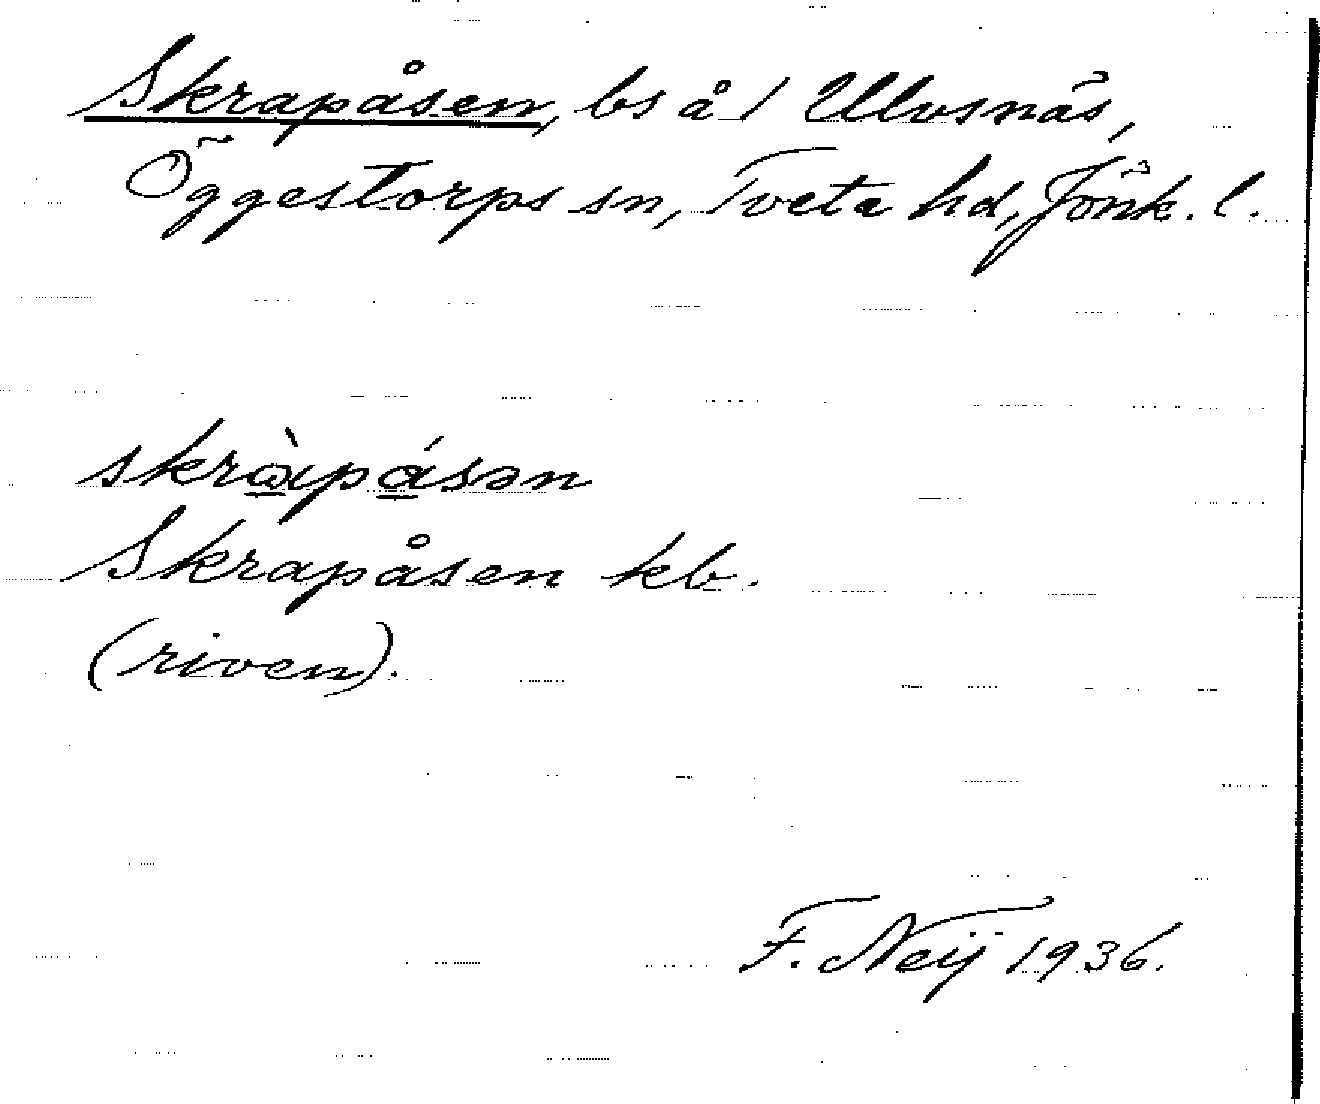 Skrapåsen, bs å 1 Ulvsnäs,
Öggestorps sn, Tveta hd, Jönk. l.
skrὼıpásən
Skrapåsen kb.
(riven).
F. Neij 1936.